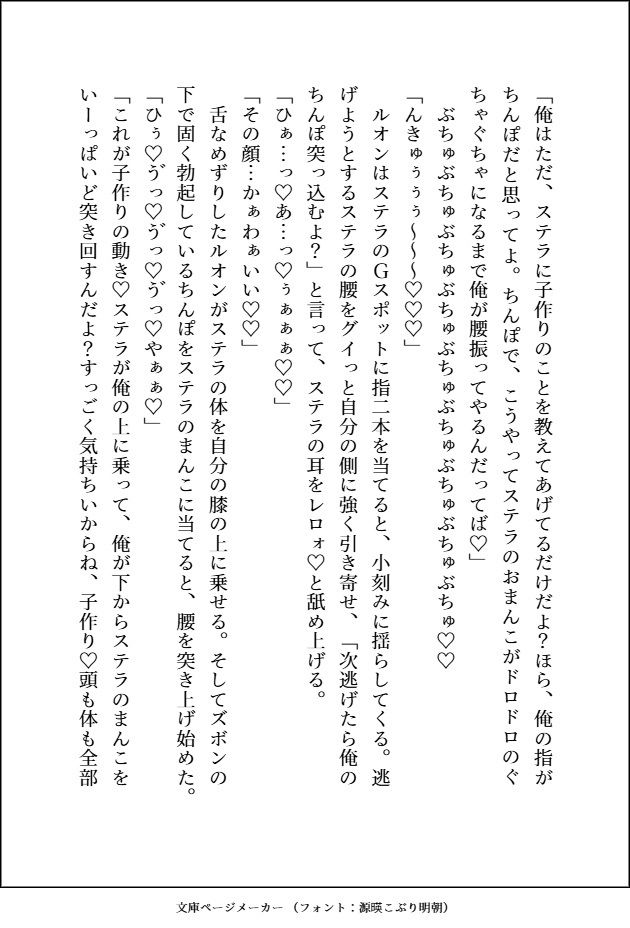 「俺はただ、ステラに子作りのことを教えてあげてるだけだよ？ほら、俺の指が
ちんぽだと思ってよ。ちんぽで、こうやってステラのおまんこがドロドロのぐ
ちゃぐちゃになるまで俺が腰振ってやるんだってば♡」
　ぶちゅぶちゅぶちゅぶちゅぶちゅぶちゅぶちゅぶちゅぶちゅ♡♡
「んきゅぅぅぅ〜〜〜♡♡♡」
　ルオンはステラのＧスポットに指二本を当てると、小刻みに揺らしてくる。逃
げようとするステラの腰をグイっと自分の側に強く引き寄せ、「次逃げたら俺の
ちんぽ突っ込むよ？」と言って、ステラの耳をレロォ♡と舐め上げる。
「ひぁ…っ♡あ…っ♡ぅぁぁぁ♡♡」
「その顔…かぁわぁいい♡♡」
　舌なめずりしたルオンがステラの体を自分の膝の上に乗せる。そしてズボンの
下で固く勃起しているちんぽをステラのまんこに当てると、腰を突き上げ始めた。
「ひぅ♡ゔっ♡ゔっ♡ゔっ♡やぁぁ♡」
「これが子作りの動き♡ステラが俺の上に乗って、俺が下からステラのまんこを
いーっぱいど突き回すんだよ？すっごく気持ちいからね、子作り♡頭も体も全部
文庫ページメーカー（フォント：源暎こぶり明朝）